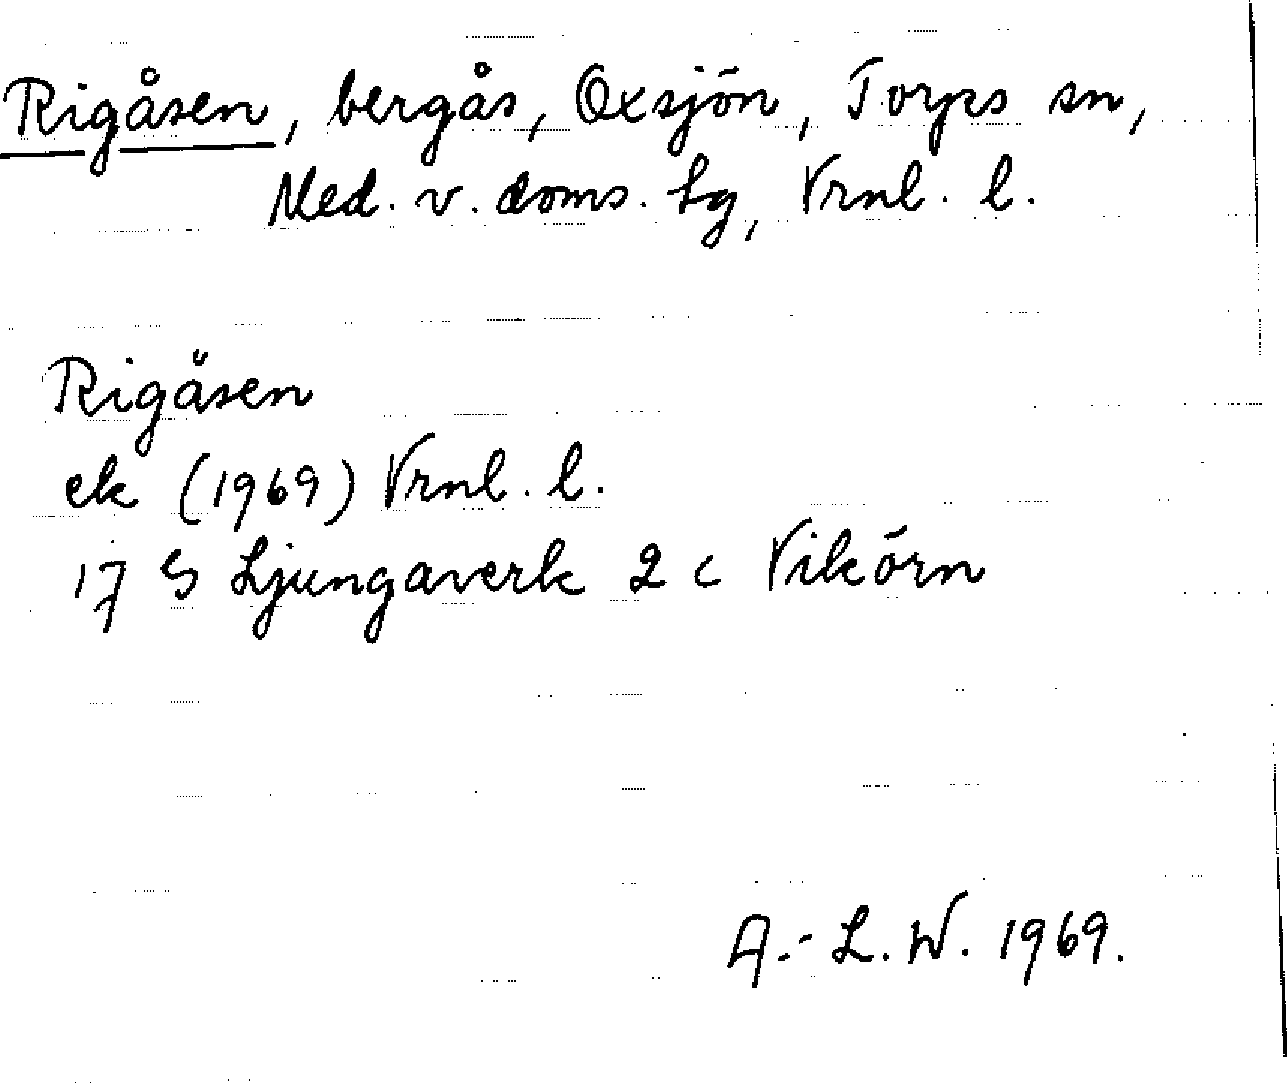 Rigåsen, bergås, Oxsjön, Torps sn,
Med. v. doms. hg, Vrnl. l.
Rigåsen
ek (1969) Vrnl. l.
17 G Ljungaverk 2 c Vikörn
A.-L. W. 1969.